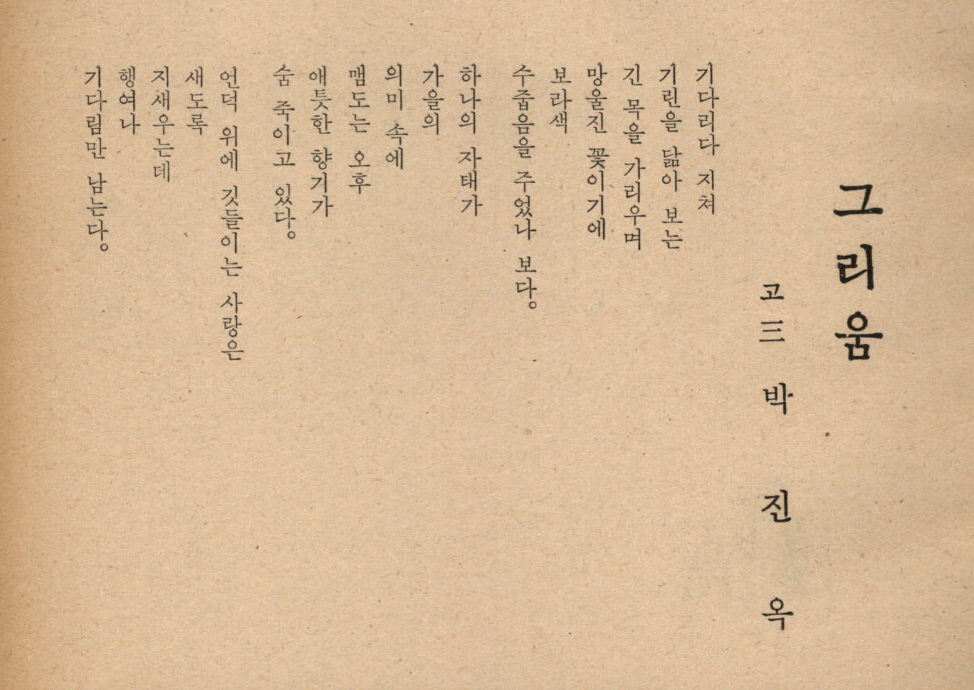 그리움
고三 박진옥
기다리다 지쳐
기린을 닮아 보는
긴 목을 가리우며
망울진 꽃이기에
보라색
수줍음을 주었나 보다。
하나의 자태가
가을의
의미 속에
맴도는 오후
애틋한 향기가
숨 죽이고 있다。
언덕 위에 깃들이는 사랑은
새도록
지새우는데
행여나
기다림만 남는다。